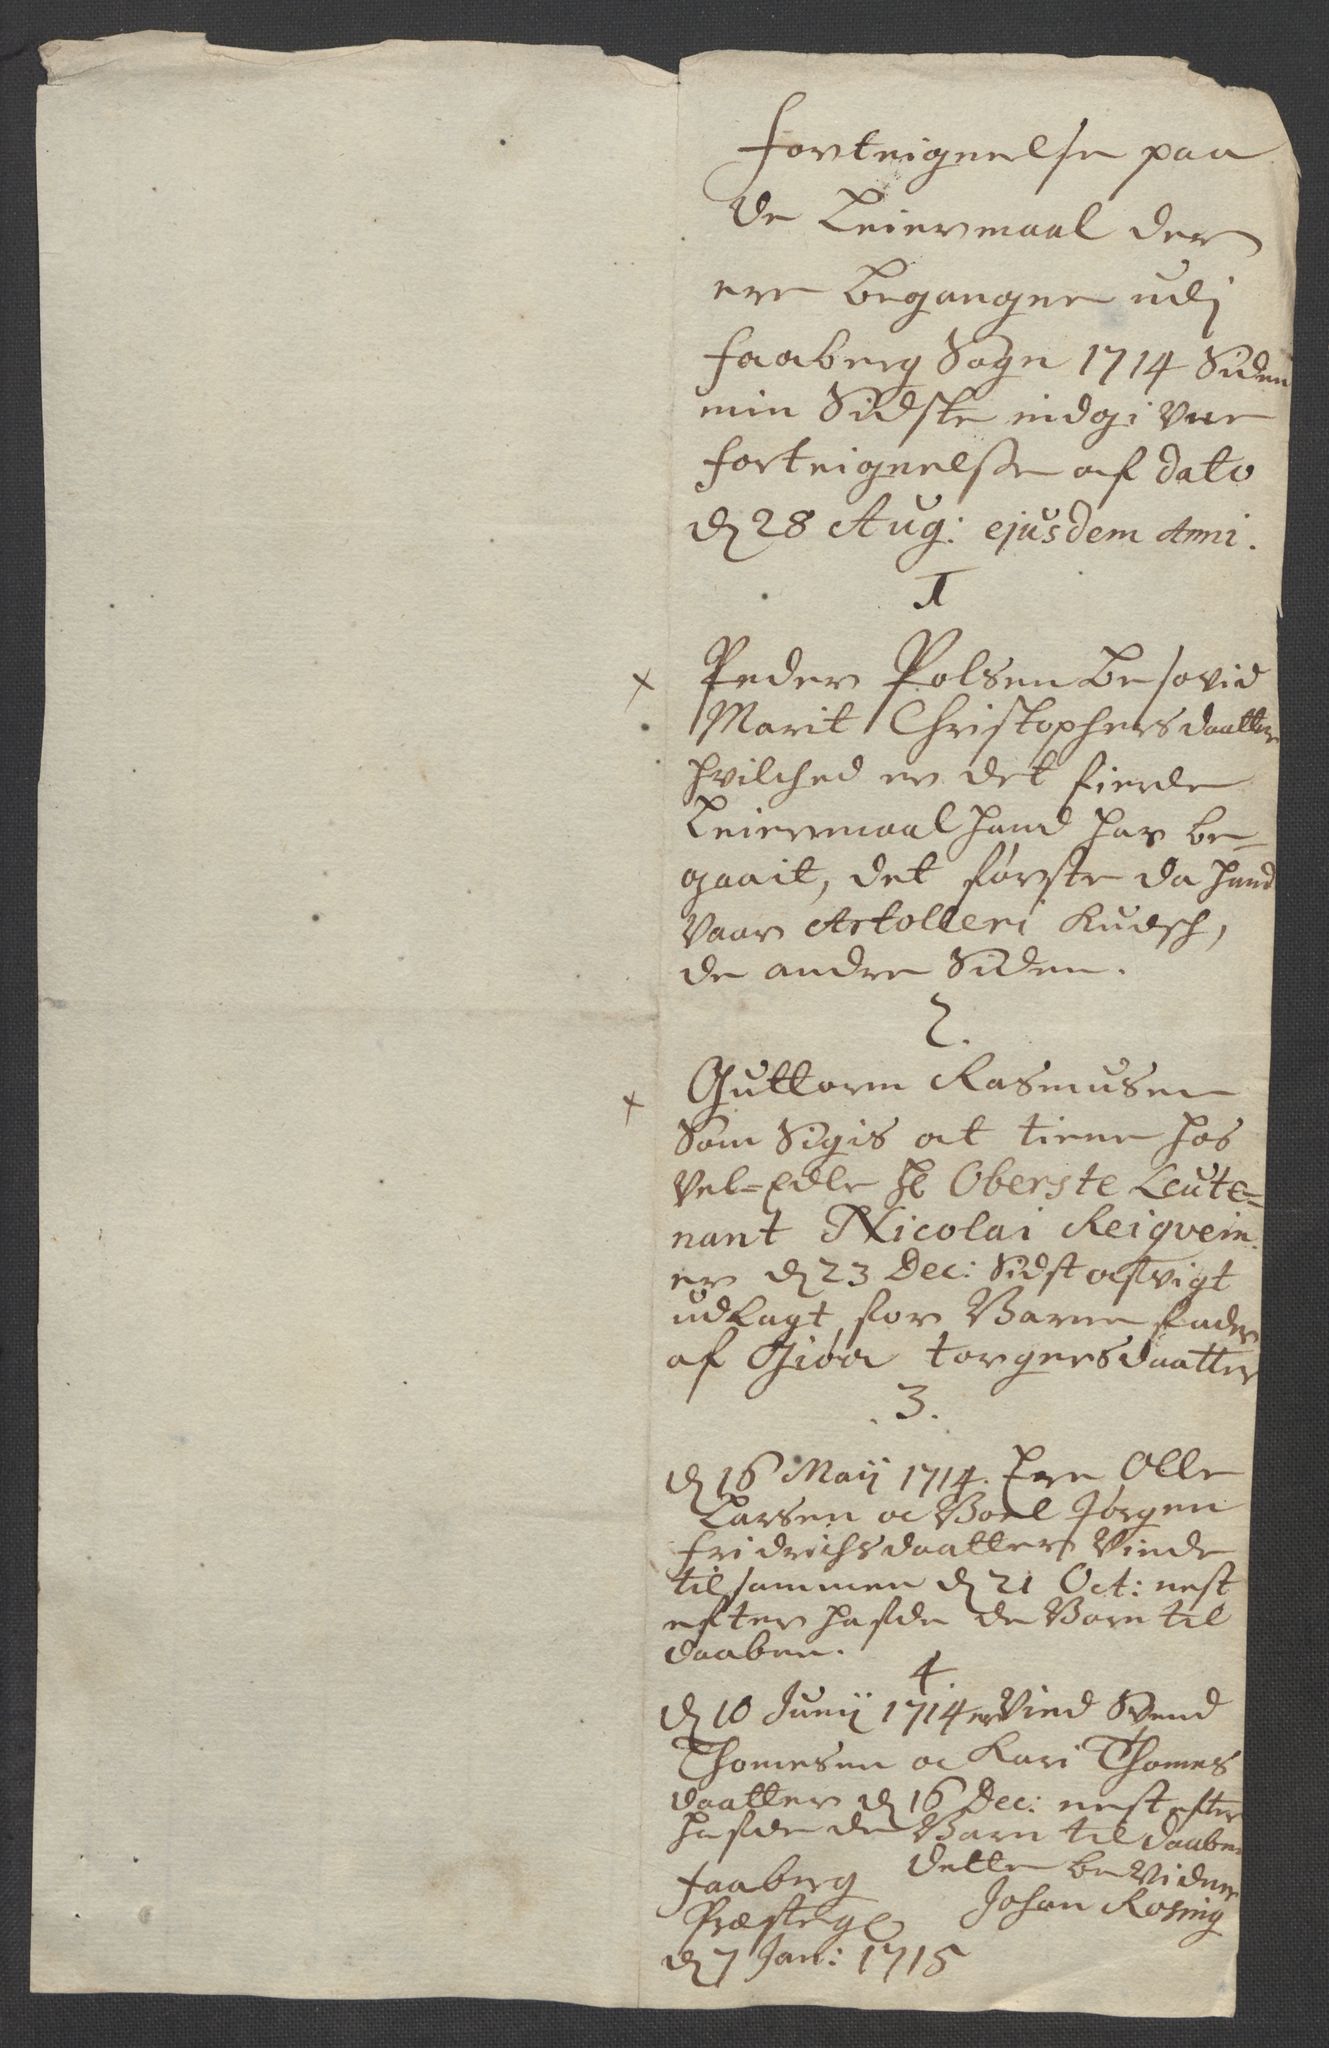 Forteignelse paa
de Leiermaal der
ere begangne udj
Faaberg Sogn 1714 Siden
min Sidste indgivne
forteignelsse af dato
d 28 Aug: ejusdem Anni.
1
× Peder Polsen besovid
Marit Christophersdaatter
hvilched er det fierde
Leiermaal hand har be-
gaait, det første da hand
vaar Artolleri Kudsch,
de andre Siden.
2.
× Guttorm Rasmusen
som sigis at tiene hos
Vel=Edle Hr Oberste Leute=
nant Nicolai Reiqvein
er d 23 Dec: sidst afvigt
udlagt for Barne fader
af Giøa torgersdaatter
.3.
d 16 Maij 1714. Ere Olle
Larsen oc Boel Jørgen
Fridrichsdaatter Viede
tilsammen d 21 Oct: nest
efter hafde de Barn til
daaben.
4.
d 10 Junij 1714 er Vied Svend
Thomesen oc Kari Thomes
daatter d 16 Dec: nest efter
hafde de Barn til daaben
Faaberg dette beVidner
Præstegd Johan Rosing
d 7 Jan: 1715